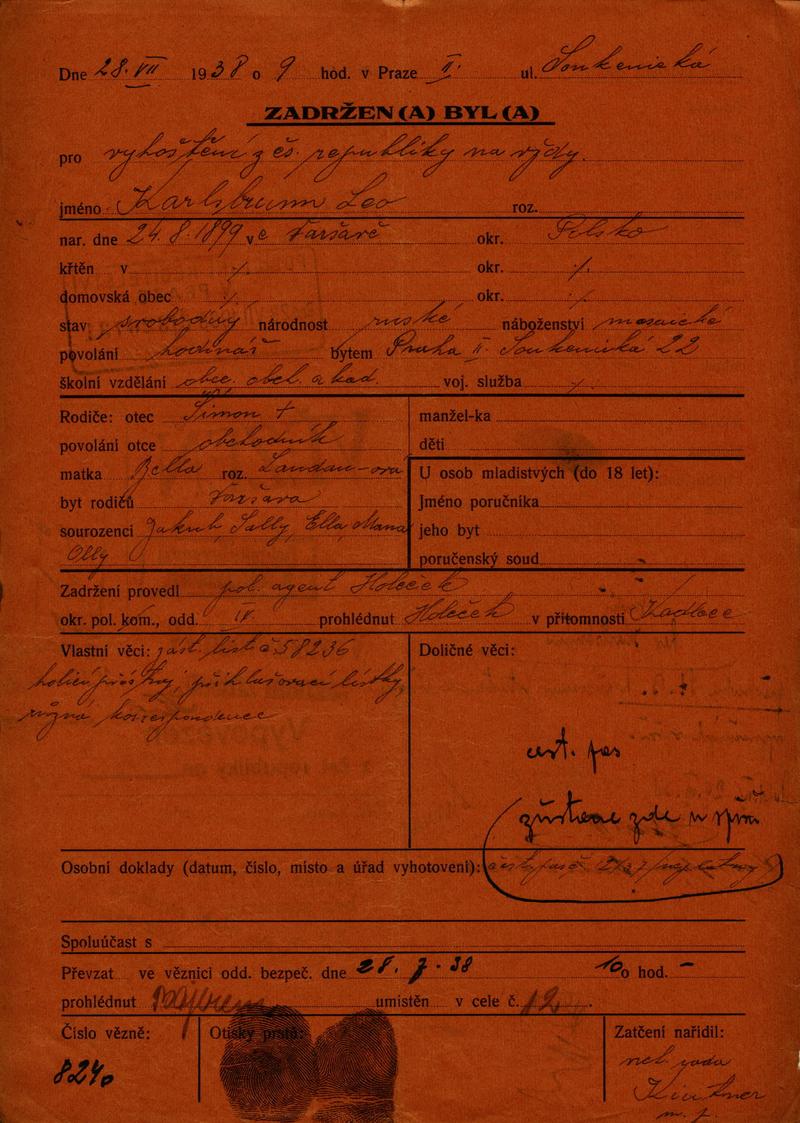 Dne 28. VII 1938 o 9 hod. v Praze II. ul. Soukenická
ZADRŽEN(A) BYL(A)
pro vyhoštění z čs. republiky na vždy.
jméno Karlsbrunn Leo roz.
nar. dne 24. 8. 1899 ve Varšavě okr. Polsko
křtěn v ./. okr. ./.
domovská obec ./. okr. ./.
stav svobodný národnost ruské náboženství mosaické
povolání hodinář bytem Praha II. Soukenická 22
školní vzdělání obec. obch. akad. voj. služba ./.
Rodiče: otec Šimon † manžel-ka
povolání otce obchodník děti
matka Bella roz. Landau-ová U osob mladistvých (do 18 let):
byt rodičů Varšava Jméno poručníka
sourozenci Jakub, Sally, Ella, Mana jeho byt
Olly poručenský soud
Zadržení provedl pol. agent Holeček
okr. pol. kom., odd. IV. prohlédnut Holeček v přítomnosti Kadlece
Vlastní věci: zást. list č. 58236 Doličné věci:
holicí přístroj, přihlašovací lístky,
různá korespondence
cest. pas
zůstane zde u spisu
Osobní doklady (datum, číslo, místo a úřad vyhotovení):
Spoluúčast s
Převzat ve věznici odd. bezpeč. dne 28. 7. 38 10 hod. —
prohlédnut umístěn v cele č. 12.
Číslo vězně: Otisky prstů: Zatčení nařídil:
8240
rada
m. p.